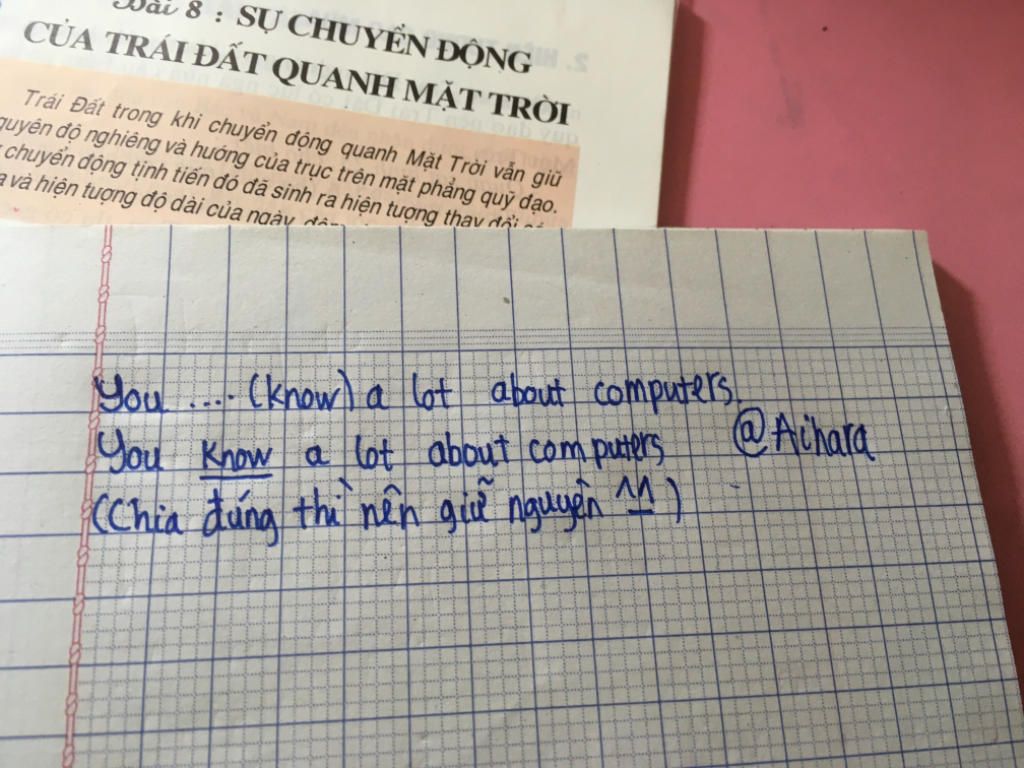 Bài 8 : SỰ CHUYỂN ĐỘNG
CỦA TRÁI ĐẤT QUANH MẶT TRỜI
Trái Đất trong khi chuyển động quanh Mặt Trời vẫn giữ
nguyên độ nghiêng và hướng của trục trên mặt phẳng quỹ đạo.
chuyển động tịnh tiến đó đã sinh ra hiện tượng thay đổi
và hiện tượng độ dài của ngày,
You .... (know) a lot about computers.
You know a lot about computers @Aihara
(Chia đúng thì nên giữ nguyên ^^)